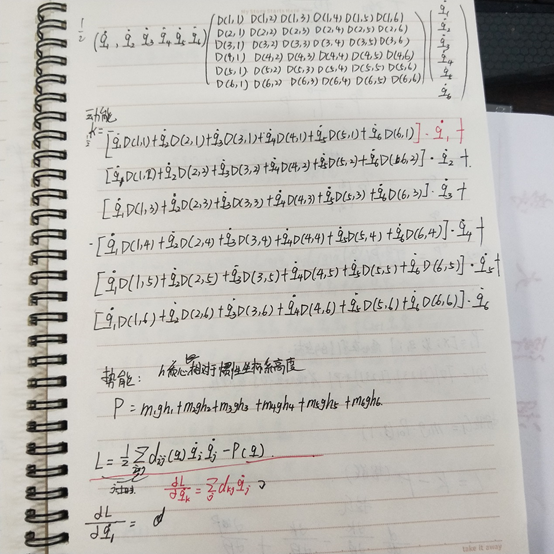 1/2 (q̇₁, q̇₂ q̇₃ q̇₄ q̇₅ q̇₆) ( D(1,1) D(1,2) D(1,3) D(1,4) D(1,5) D(1,6) ) ( q̇₁ )
D(2,1) D(2,2) D(2,3) D(2,4) D(2,5) D(2,6) q̇₂
D(3,1) D(3,2) D(3,3) D(3,4) D(3,5) D(3,6) q̇₃
D(4,1) D(4,2) D(4,3) D(4,4) D(4,5) D(4,6) q̇₄
D(5,1) D(5,2) D(5,3) D(5,4) D(5,5) D(5,6) q̇₅
D(6,1) D(6,2) D(6,3) D(6,4) D(6,5) D(6,6) q̇₆
动能
K=½[q̇₁D(1,1)+q̇₂D(2,1)+q̇₃D(3,1)+q̇₄D(4,1)+q̇₅D(5,1)+q̇₆D(6,1)]·q̇₁+
[q̇₁D(1,2)+q̇₂D(2,2)+q̇₃D(3,2)+q̇₄D(4,2)+q̇₅D(5,2)+q̇₆D(6,2)]·q̇₂+
[q̇₁D(1,3)+q̇₂D(2,3)+q̇₃D(3,3)+q̇₄D(4,3)+q̇₅D(5,3)+q̇₆D(6,3)]·q̇₃+
[q̇₁D(1,4)+q̇₂D(2,4)+q̇₃D(3,4)+q̇₄D(4,4)+q̇₅D(5,4)+q̇₆D(6,4)]·q̇₄+
[q̇₁D(1,5)+q̇₂D(2,5)+q̇₃D(3,5)+q̇₄D(4,5)+q̇₅D(5,5)+q̇₆D(6,5)]·q̇₅+
[q̇₁D(1,6)+q̇₂D(2,6)+q̇₃D(3,6)+q̇₄D(4,6)+q̇₅D(5,6)+q̇₆D(6,6)]·q̇₆
势能: h质心相对于惯性坐标系高度
P = m₁gh₁+m₂gh₂+m₃gh₃+m₄gh₄+m₅gh₅+m₆gh₆
L = ½ Σ dᵢⱼ(q) q̇ᵢ q̇ⱼ − P(q)
dL/dq̇ₖ = Σ dₖⱼ q̇ⱼ
dL/dq̇₁ = d
take it away